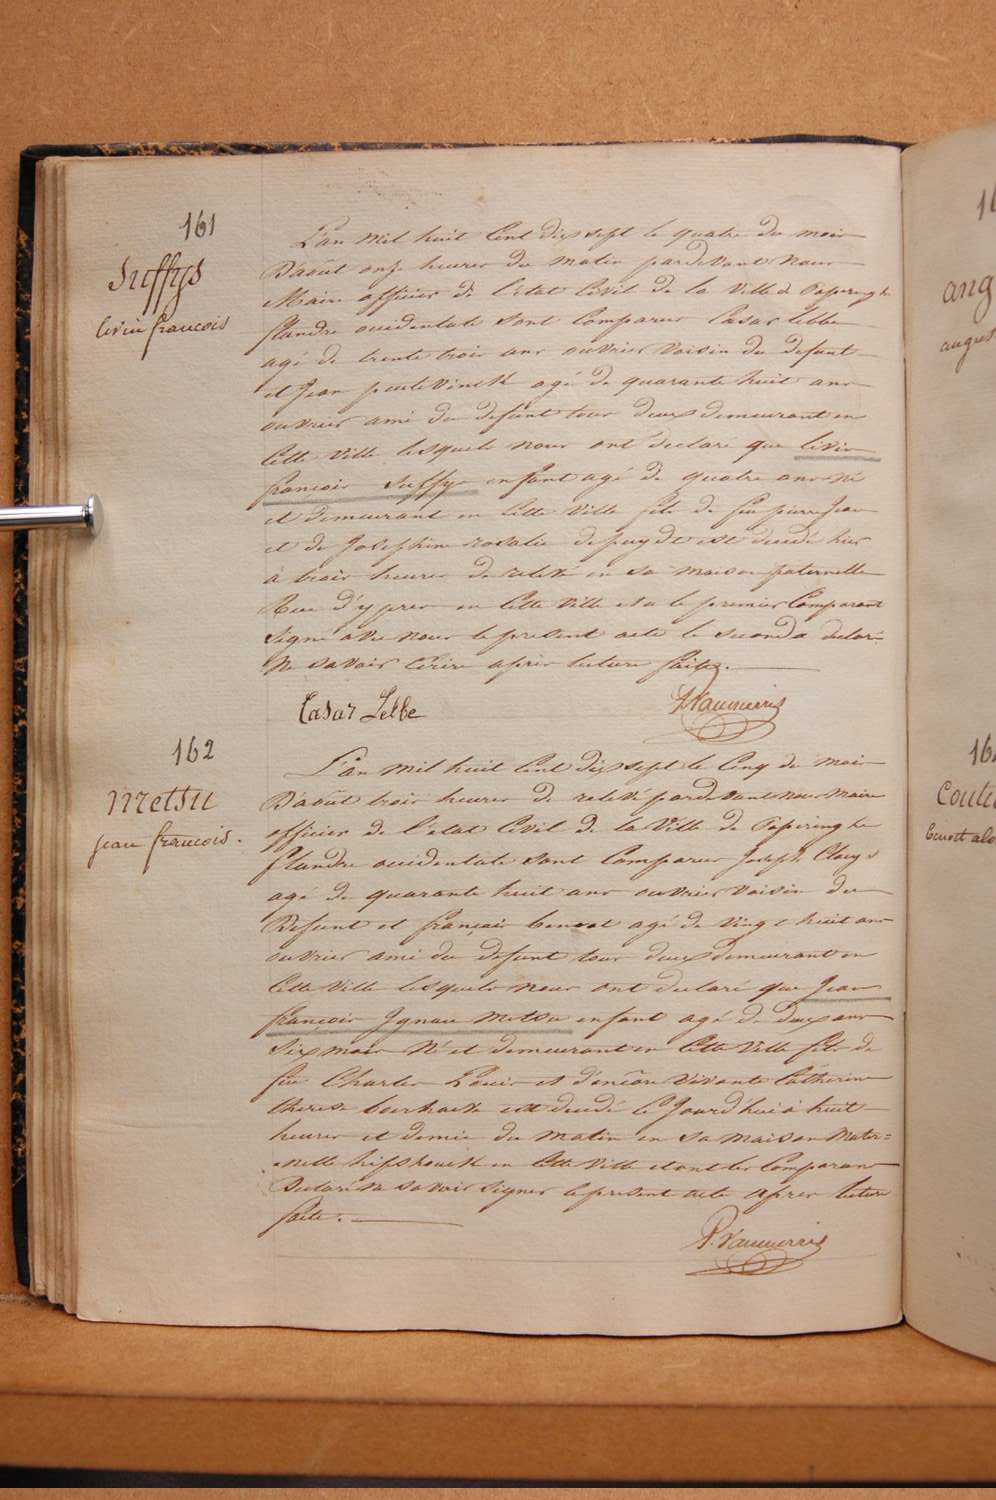 161
Suffys
livin francois
L'an mil huit Cent dix sept le quatre du mois
D'août onze heures du matin pardevant nous
Maire officier de l'état Civil de la Ville de Poperinghe
flandre occidentale sont Comparus Casar Lebbe
agé de trente trois ans ouvrier voisin du defunt
et Jean agé de quarante huit ans
ouvrier ami du defunt tous deux demeurant en
Cette Ville lesquels nous ont declaré que livin
françois Suffys enfant agé de quatre ans né
et demeurant en Cette Ville fils de feu pierre Jean
et de Josephine rosalie depuydt est décédé hier
à trois heures de relevé en sa maison paternelle
Rue d'ypres en Cette Ville et a le premier Comparant
signé avec nous le present acte le second a declaré
ne savoir Ecrire après lecture faite.
Casar Lebbe
162
Metsu
jean francois.
L'an mil huit Cent dix sept le Cinq du mois
D'août trois heures de relevé pardevant nous Maire
officier de l'état Civil de la Ville de Poperinghe
flandre occidentale sont Comparus Joseph Claeys
agé de quarante huit ans ouvrier voisin du
Defunt et françois benoot agé de vingt huit ans
ouvrier ami du defunt tous deux demeurant en
Cette Ville lesquels nous ont declaré que Jean
françois Ignace Metsu enfant agé de deux ans
six mois né et demeurant en Cette Ville fils de
feu Charles Louis et d'encore vivante Catherine
therese est décédé Ce Jourd'hui à huit
heures et demie du matin en sa maison Mater=
nelle en Cette Ville et ont les Comparans
declaré ne savoir signer le present acte après lecture
faite.
ang